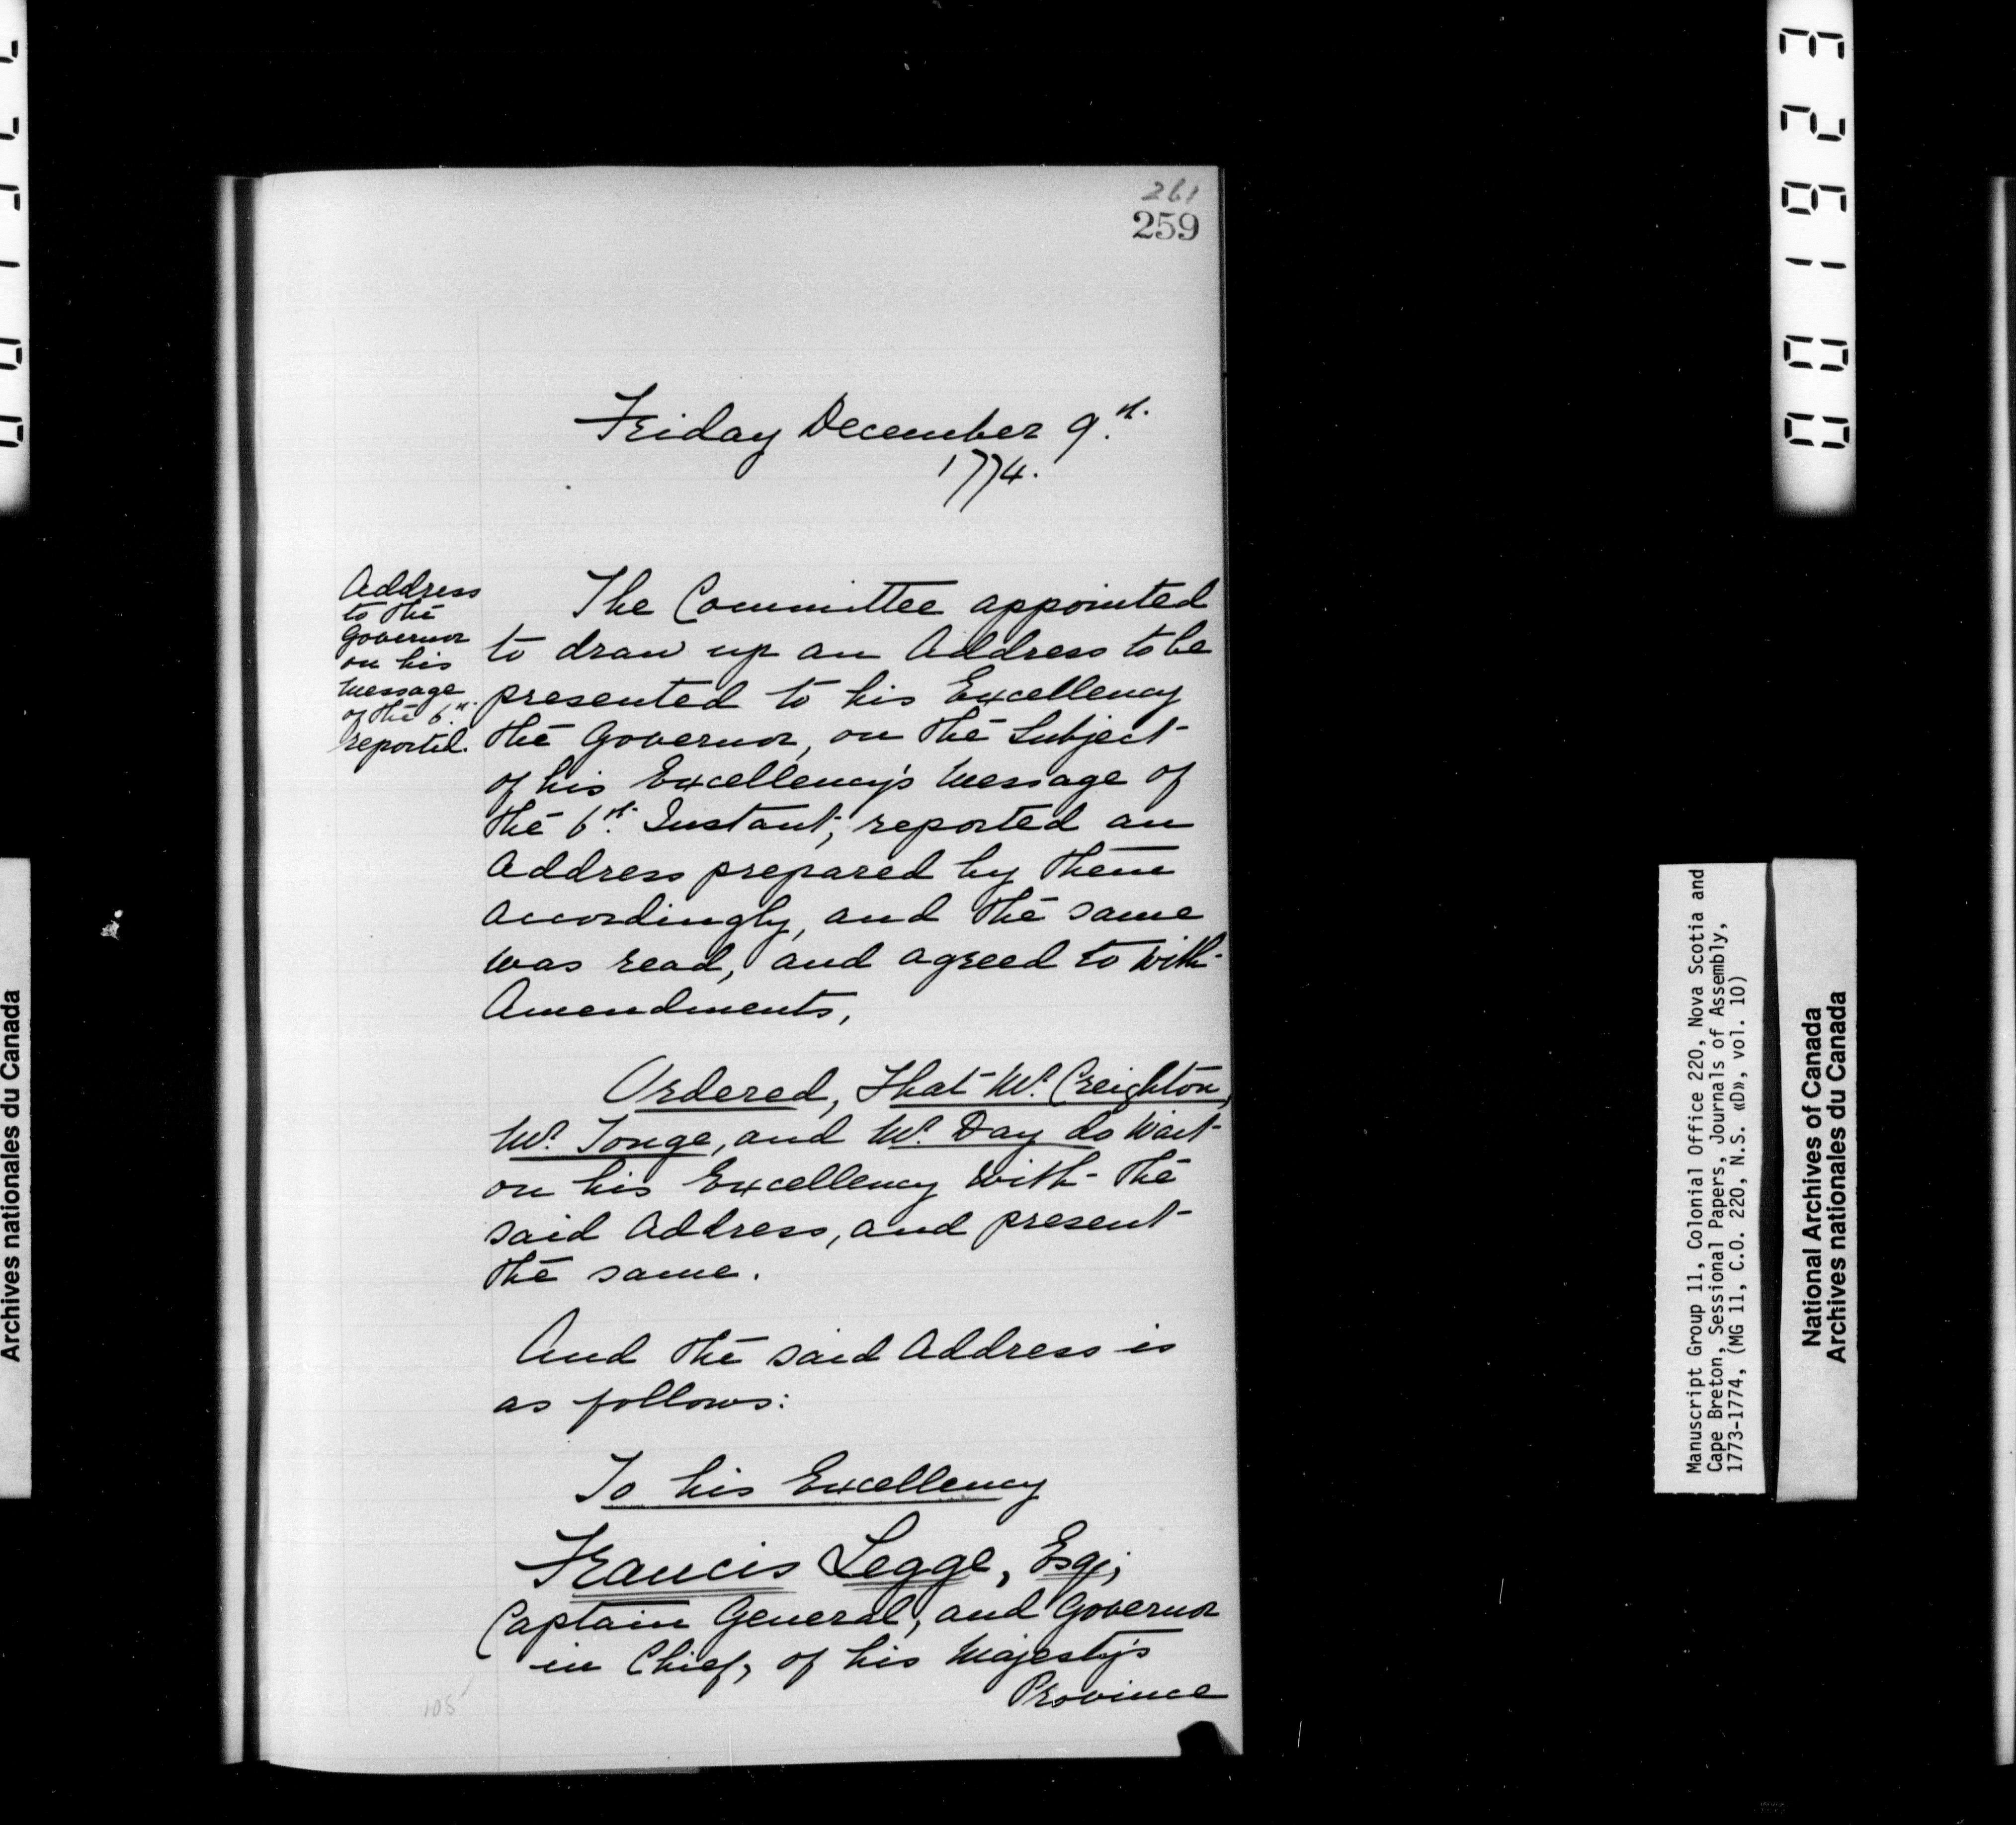 261
259
Friday December 9.th
1774.
Address
to the
Governor
on his
Message
of the 6.th
reported.
The Committee appointed
to draw up an Address to be
presented to his Excellency
the Governor, on the Subject
of his Excellency's Message of
the 6.th Instant, reported an
Address prepared by them
accordingly, and the same
was read, and agreed to with
Amendments,
Ordered, That Mr. Creighton,
Mr. Tonge, and Mr. Day do wait
on his Excellency with the
said Address, and present
the same.
And the said Address is
as follows:
To his Excellency
Francis Legge, Esq;
Captain General, and Governor
in Chief, of his Majesty's
Province
105
Archives nationales du Canada
Manuscript Group 11, Colonial Office 220, Nova Scotia and
Cape Breton, Sessional Papers, Journals of Assembly,
1773-1774, (MG 11, C.O. 220, N.S. «D», vol. 10)
National Archives of Canada
Archives nationales du Canada